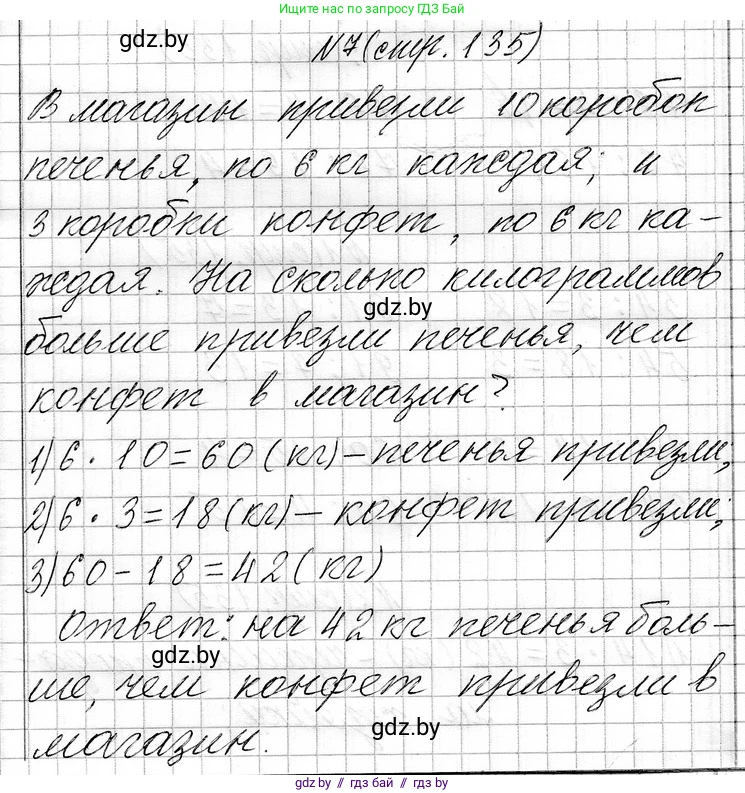 Ищите нас по запросу ГДЗ Бай
gdz.by
№7 (стр. 135)
В магазин привезли 10 коробок
печенья, по 6 кг каждая; и
3 коробки конфет, по 6 кг ка-
ждая. На сколько килограммов
gdz.by
больше привезли печенья, чем
конфет в магазин?
1) 6 · 10 = 60 (кг) – печенья привезли;
2) 6 · 3 = 18 (кг) – конфет привезли;
3) 60 – 18 = 42 (кг)
Ответ: на 42 кг печенья боль-
gdz.by
ше, чем конфет привезли в
gdz.by
магазин.
gdz.by // гдз бай // gdz.by